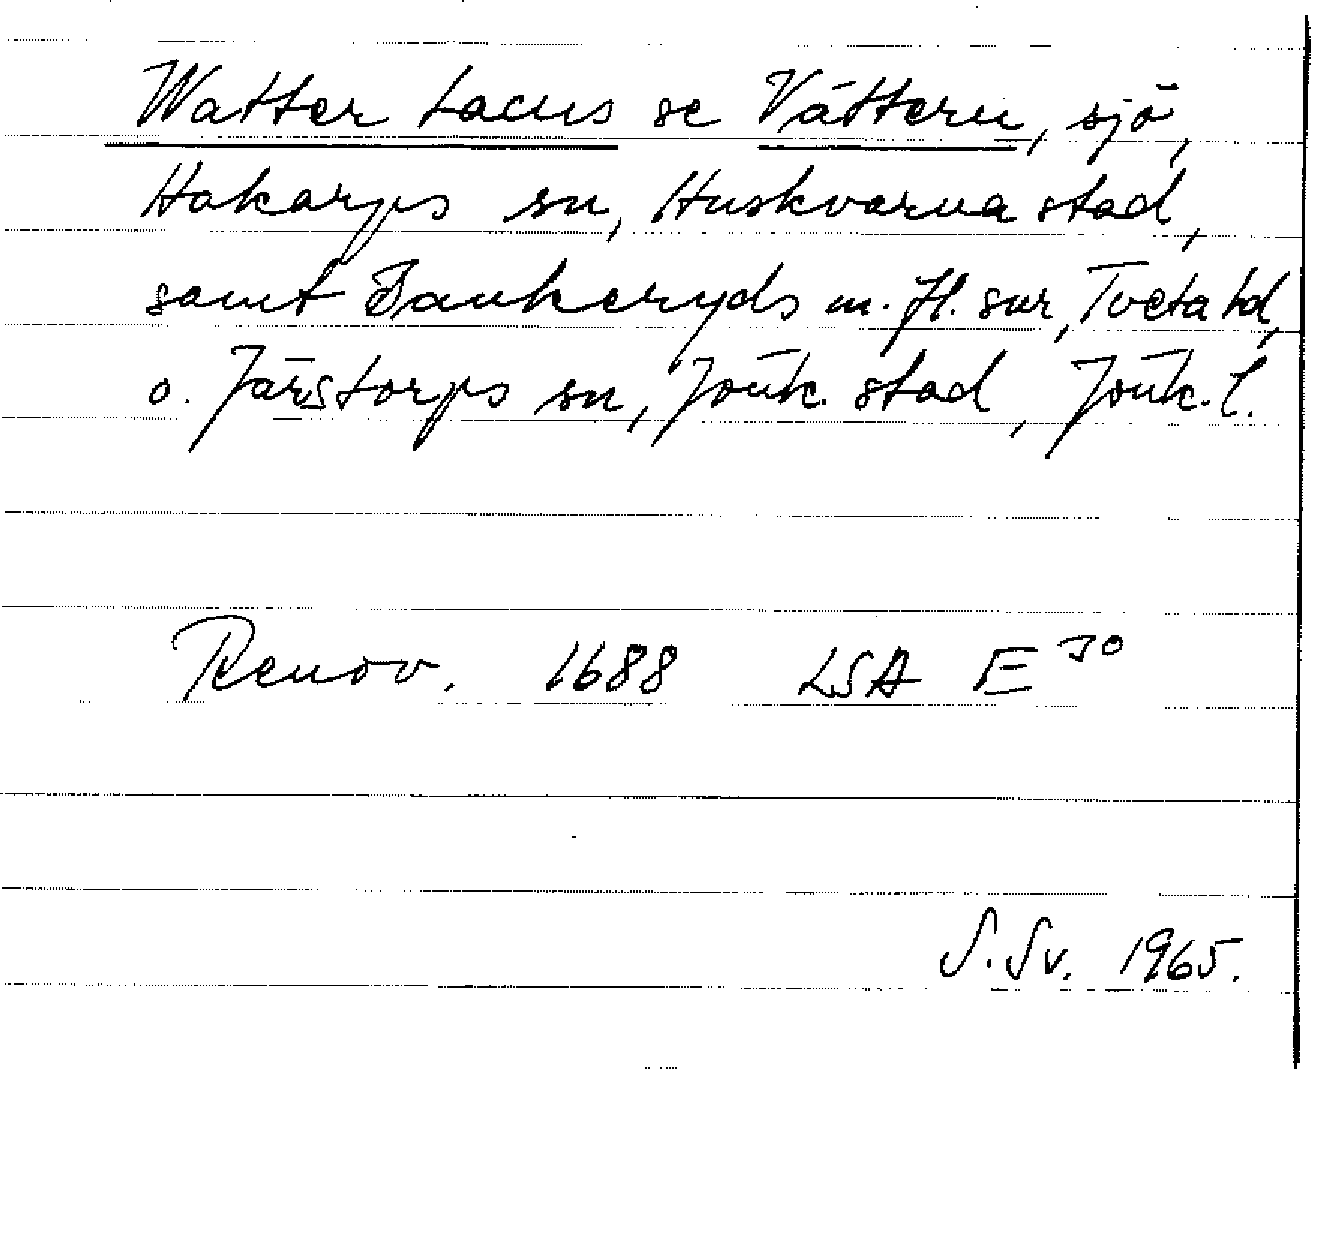 Watter Lacus se Vättern, sjö,
Hakarps sn, Huskvarna stad,
samt Bankeryds m. fl. snr, Tveta hd,
o. Järstorps sn, Jönk. stad, Jönk. l.
Renov. 1688 LSA E 30
S. Sv. 1965.